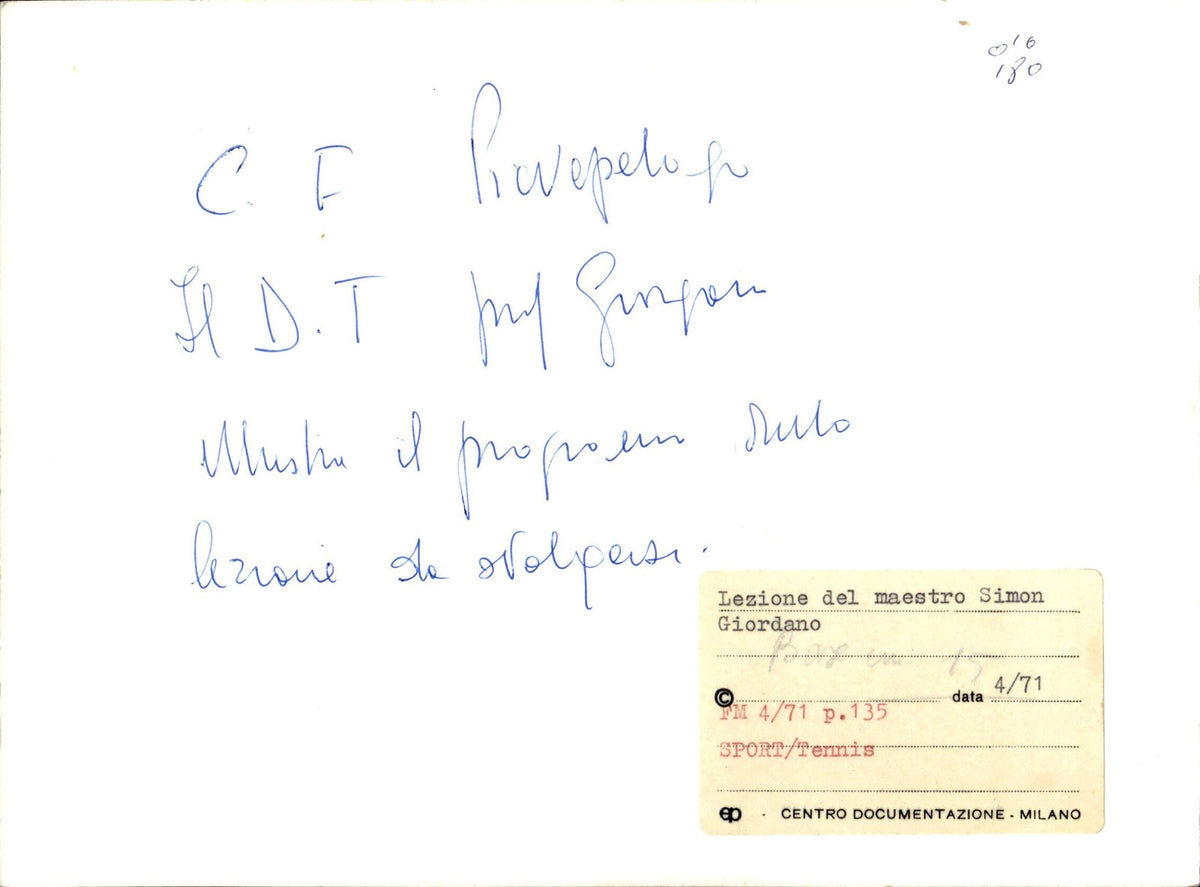 180
C. F Pievepelago
Il D.T prof
Mostra il programma della
lezione da svolgersi.
Lezione del maestro Simon
Giordano
© data 4/71
FM 4/71 p.135
SPORT/Tennis
ep · CENTRO DOCUMENTAZIONE - MILANO